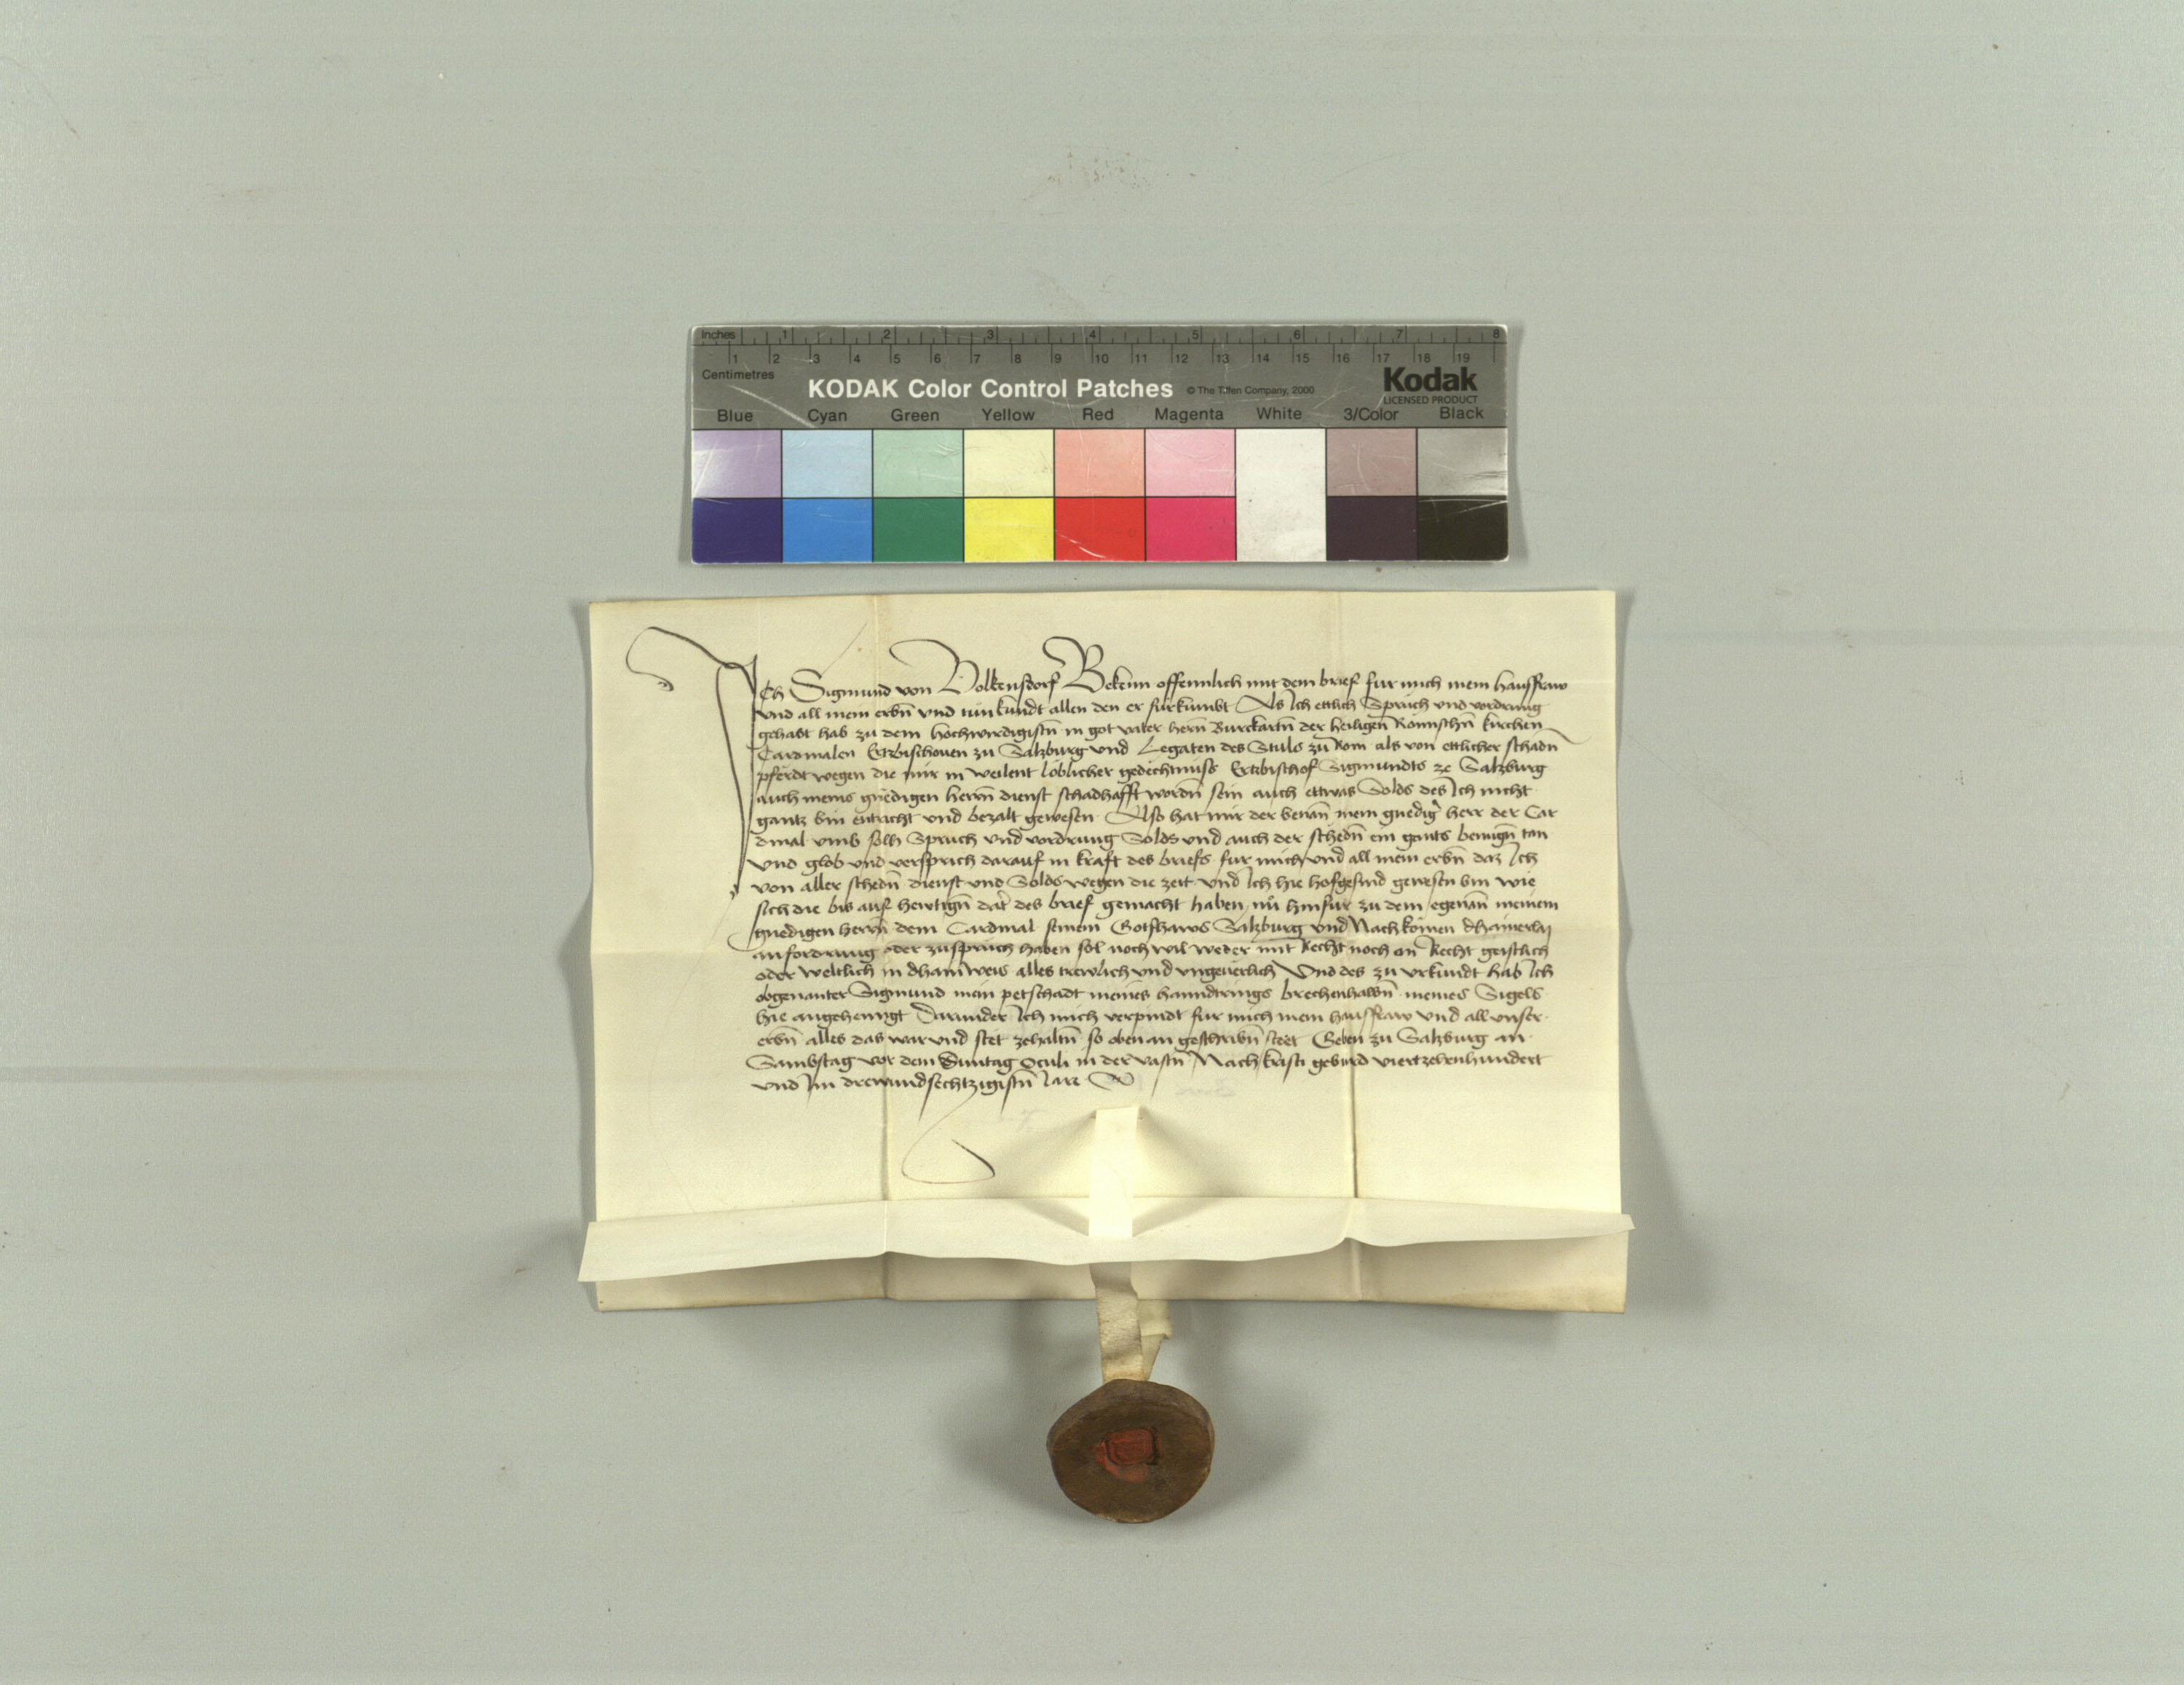 Inches 1 2 3 4 5 6 7 8
1 2 3 4 5 6 7 8 9 10 11 12 13 14 15 16 17 18 19
Centimetres
KODAK Color Control Patches © The Tiffen Company, 2000 Kodak
LICENSED PRODUCT
Blue Cyan Green Yellow Red Magenta White 3/Color Black
Ich Sigmund von Volkenstorf Bekenn offennlich mit dem brief fur mich mein hausfraw
vnd all mein erbn̄ vnd tun kundt allen den er furkumbt Als Ich ettlich Spruch vnd vordrung
gehabt hab zu dem hochwirdigistn̄ in got vater herrn̄ Burckartn̄ der heiligen Romischn̄ kirchen
Cardinalen Ertzbischouen zu Salzburg vnd Legaten des Stuls zu Rom als von ettlicher schadn̄
pferdt wegen die mir in weilent loblicher gedechtnuss Ertzbischof Sigmundts ze Salzburg
auch meins gnedigen herrn̄ dienst schadhafft wordn̄ sein auch ettwas Solds des Ich nicht
gantz bin entricht vnd bezalt gewesen Also hat mir der benan̄ mein gnedigʼ herr der Car
dinal vmb solh Spruch vnd vordrung Solds vnd auch der schedn̄ ein gants benugn̄ tan
vnd glob vnd versprich darauf in kraft des briefs fur mich vnd all mein erbn̄ daz Ich
von aller schedn̄ dienst vnd Solds wegen die zeit vnd Ich hie hofgesind gewesen bin wie
sich die bis auf hewtign̄ dat des brief gemacht haben nu hinfur zu dem egenan̄ meinem
gnedigen herrn̄ dem Cardinal seinem Gotshaws Salzburg vnd Nachkomen dhainerlaj
anfordrung oder zuspruch haben sol noch wil weder mit Recht noch an Recht geistlich
oder weltlich in dhain weis alles trewlich vnd vngeuerlich Vnd des zu vrkundt hab Ich
obgenanter Sigmund mein petschadt meines hanndtrings brechenhalbn̄ meines Sigels
hie angehenngt Darunder Ich mich verpindt fur mich mein hausfraw vnd all vnser
erbn̄ alles das war vnd stet zehaltn̄ so oben an geschribn̄ steet Geben zu Salzburg an
Sambstag vor dem Suntag Oculi in der vastn̄ Nach kristi geburd viertzehenhundert
vnd Im drewundsechtzigistn̄ Jare